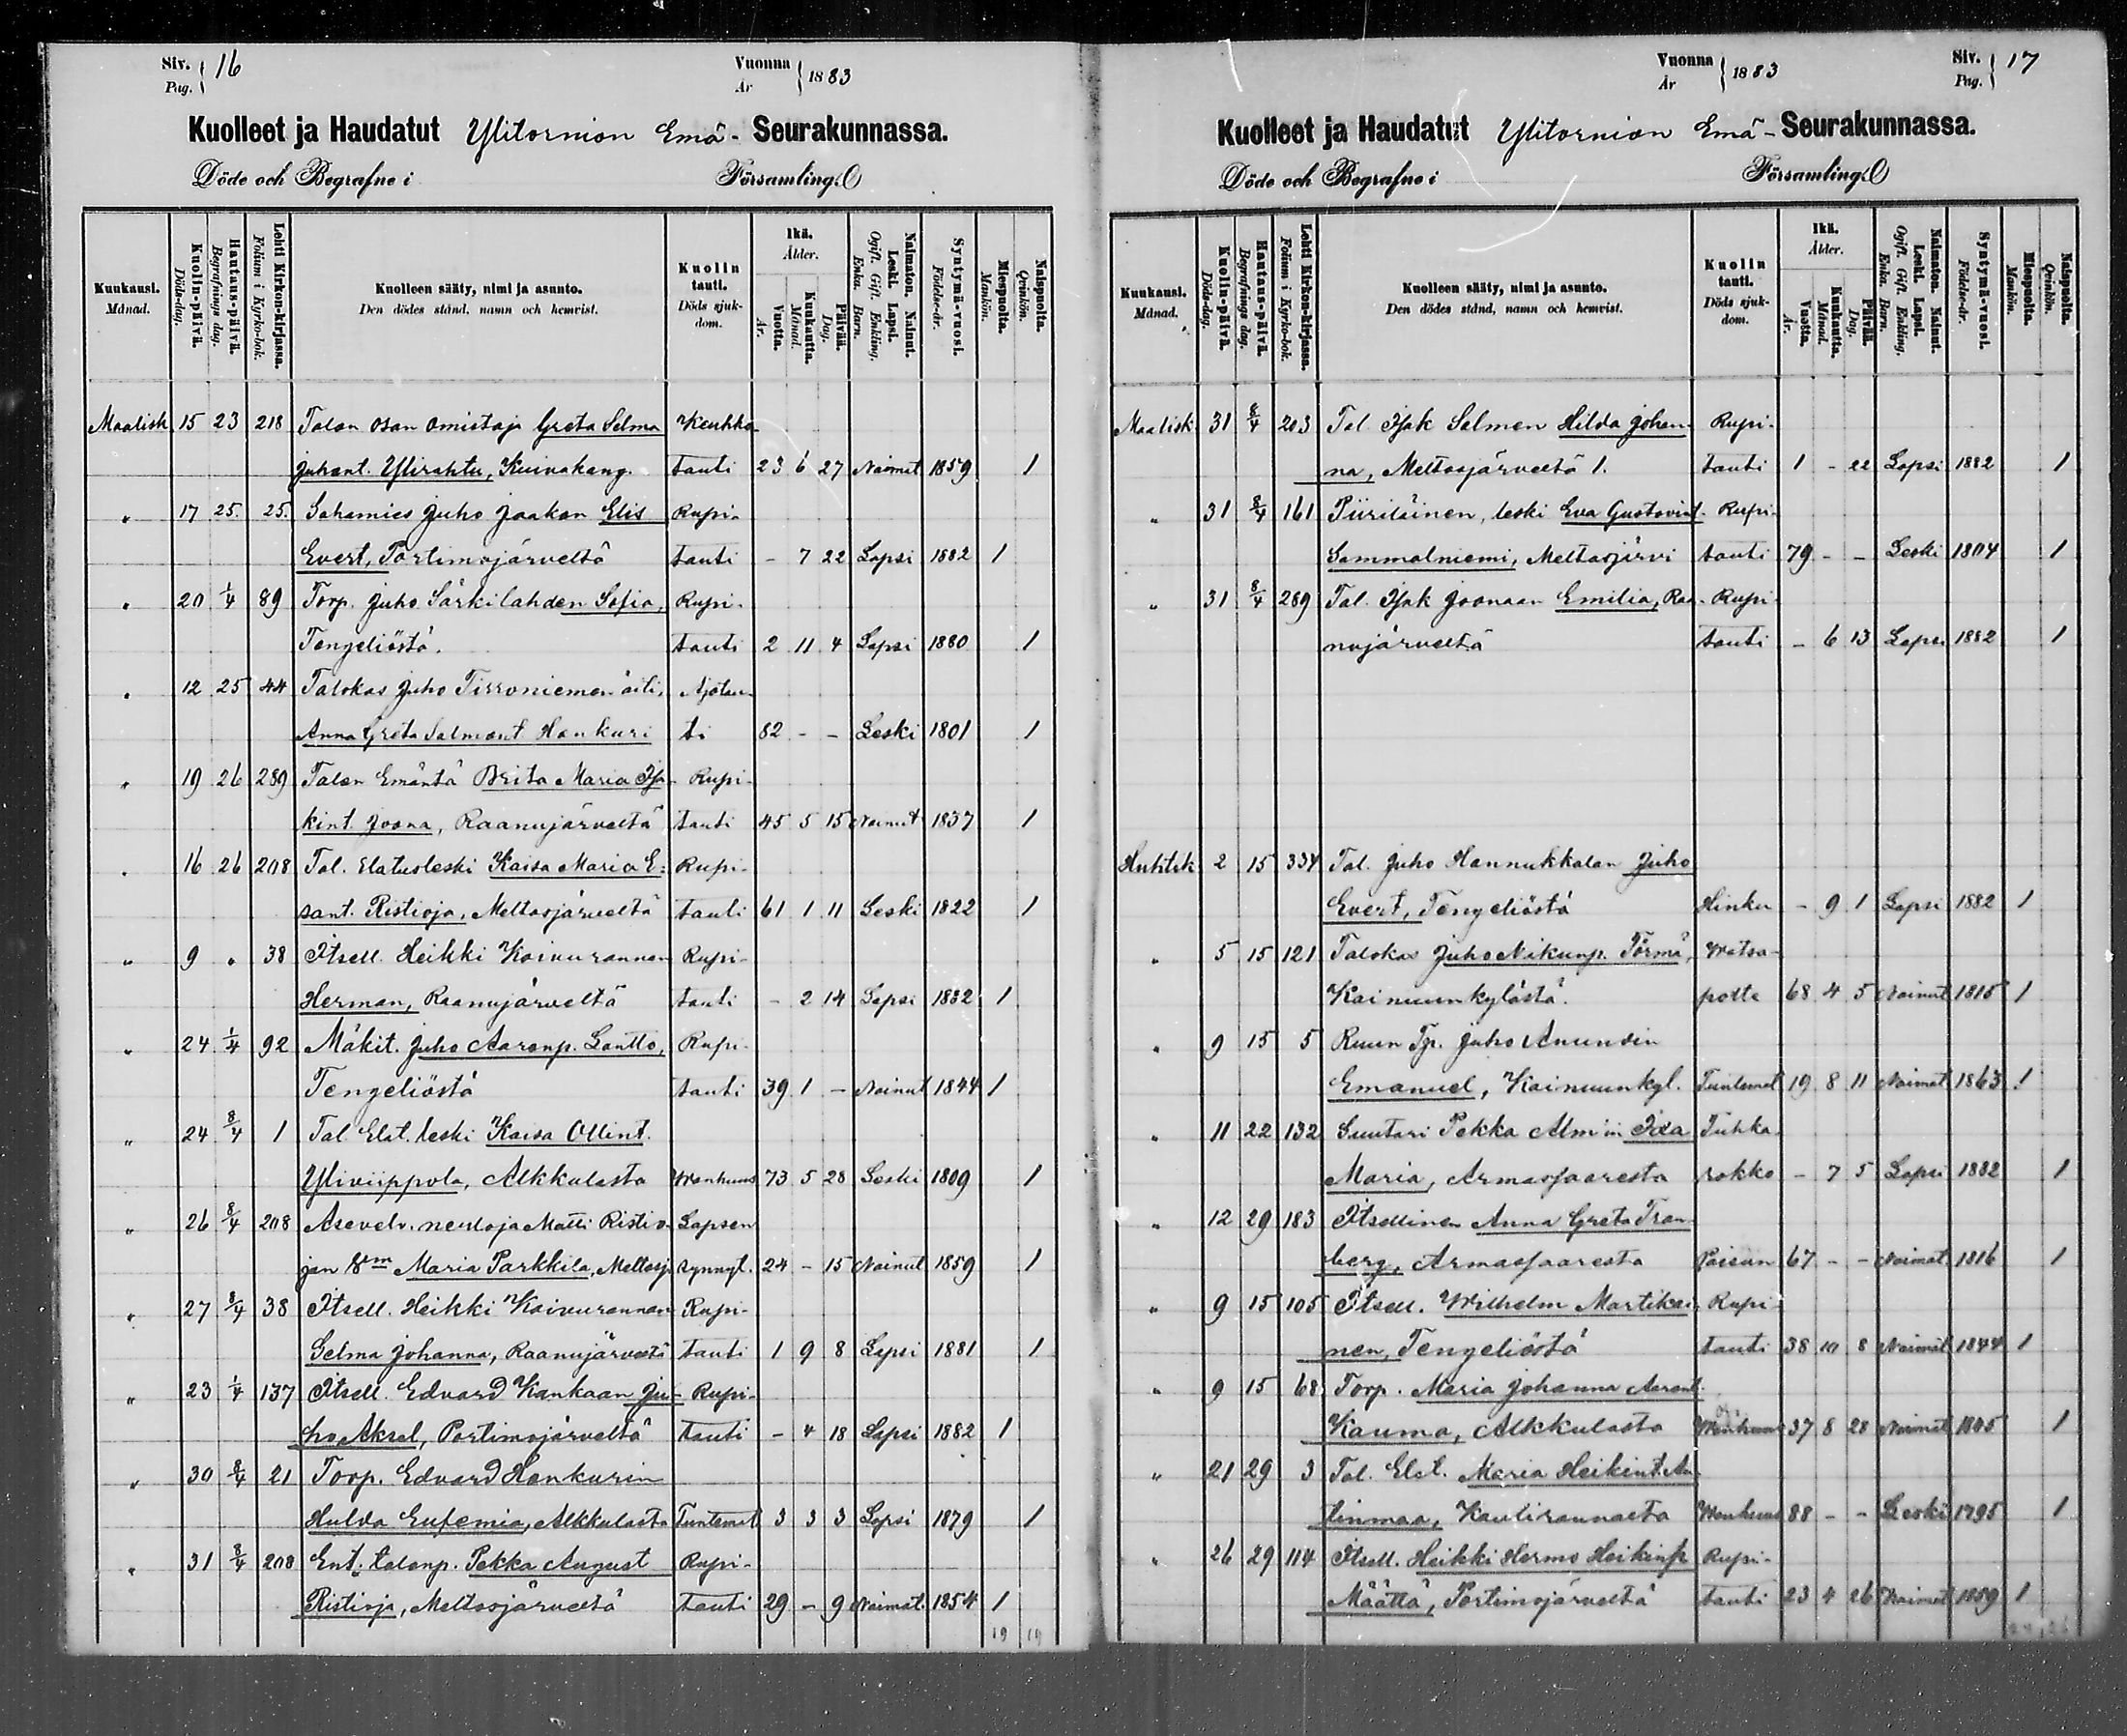 Siv. Pag. 16
Vuonna År 1883
Kuolleet ja Haudatut Ylitornion Emä- Seurakunnassa.
Döde och Begrafne i Församling.
Kuukausi. Månad.
Kuolin-päivä. Döds-dag.
Hautaus-päivä. Begrafnings dag.
Lehti Kirkon-kirjassa. Folium i Kyrko-bok.
Kuolleen sääty, nimi ja asunto. Den dödes stånd, namn och hemvist.
Kuolin tauti. Döds sjuk-dom.
Ikä. Ålder.
Vuotta. År.
Kuukautta. Månad.
Päivää. Dag.
Naimaton. Nainut. Leski. Lapsi. Ogift. Gift. Enkling. Enka. Barn.
Syntymä-vuosi. Födelse-år.
Miespuolta. Mankön.
Naispuolta. Qvinkön.
Maalisk 15 23 218 Talon osan omistaja Greta Selma Keuhko-
Juhant. Ylirahtu, Kuivakang. tauti 23 6 27 Naimat 1859 1
" 17 25 25 Sahamies Juho Jaakon Elis Rupi-
Evert, Portimojärveltä tauti - 7 22 Lapsi 1882 1
" 20 1/4 89 Torp. Juho Särkilahden Sofia, Rupi-
Tengeliöstä. tauti 2 11 4 Lapsi 1880 1
" 12 25 44 Talokas Juho Tissoniemen äiti, Ajotau-
Anna Greta Salmont Honkuri ti 82 - - Leski 1801 1
" 19 26 289 Talon Emäntä Brita Maria Isa- Rupi-
kint. Joona, Raanujärveltä tauti 45 5 15 Nainut 1837 1
" 16 26 208 Tal. Elatusleski Kaisa Maria E= Rupi-
sant. Ristioja, Meltosjärveltä tauti 61 1 11 Leski 1822 1
" 9 " 38 Itsell. Heikki Koivurannan Rupi-
Herman, Raanujärveltä tauti - 2 14 Lapsi 1882 1
" 24 1/4 92 Mäkit. Juho Aaronp. Lantto, Rupi-
Tengeliöstä tauti 39 1 - Nainut 1844 1
" 24 8/4 1 Tal. Elat. leski Kaisa Ollint.
Yliviippola, Alkkulasta Wanhuus 73 5 28 Leski 1809 1
" 26 8/4 208 Asevelv. neuloja Matti Ristio- Lapsen
jan Vm Maria Parkkila, Meltosj. synnyt. 24 - 15 Nainut 1859 1
" 27 8/4 38 Itsell. Heikki Koivurannan Rupi-
Selma Johanna, Raanujärveltä tauti 1 9 8 Lapsi 1881 1
" 23 1/4 137 Itsell. Edvard Kankaan Ju- Rupi-
ho Aksel, Portimojärveltä tauti - 4 18 Lapsi 1882 1
" 30 8/4 21 Torp. Edvard Honkurin
Hulda Eufemia, Alkkulasta Tuntemat 3 3 3 Lapsi 1879 1
" 31 8/4 208 Ent. talonp. Pekka August Rupi-
Ristioja, Meltosjärveltä tauti 29 - 9 Naimat 1854 1
19 19
Vuonna År 1883
Siv. Pag. 17
Kuolleet ja Haudatut Ylitornion Emä- Seurakunnassa.
Döde och Begrafne i Församling.
Kuukausi. Månad.
Kuolin-päivä. Döds-dag.
Hautaus-päivä. Begrafnings dag.
Lehti Kirkon-kirjassa. Folium i Kyrko-bok.
Kuolleen sääty, nimi ja asunto. Den dödes stånd, namn och hemvist.
Kuolin tauti. Döds sjuk-dom.
Ikä. Ålder.
Vuotta. År.
Kuukautta. Månad.
Päivää. Dag.
Naimaton. Nainut. Leski. Lapsi. Ogift. Gift. Enkling. Enka. Barn.
Syntymä-vuosi. Födelse-år.
Miespuolta. Mankön.
Naispuolta. Qvinkön.
Maalisk 31 8/4 203 Tal. Isak Salmen Hilda Johan- Rupi-
na, Meltosjärveltä 1. tauti 1 - 22 Lapsi 1882 1
" 31 8/4 161 Piiriläinen, leski Eva Gustavint. Rupi-
Sammalniemi, Meltosjärvi tauti 79 - - Leski 1804 1
" 31 8/4 289 Tal. Isak Joonaan Emilia, Raa- Rupi-
nujärveltä tauti - 6 13 Lapsi 1882 1
Huhtik 2 15 334 Tal. Juho Hannukkalan Juho
Evert, Tengeliöstä Hinku - 9 1 Lapsi 1882 1
" 5 15 121 Talokas Juho Nikunp. Törmä, Watsa-
Kainuunkylästä. potte 68 4 5 Nainut 1815 1
" 9 15 5 Ruun Tp. Juho Anundin
Emanuel, Kainuunkyl. Tuntemat 19 8 11 Naimat 1863 1
" 11 22 132 Suutari Pekka Alm'in Ida Tuhka
Maria, Armassaaresta rokko - 7 5 Lapsi 1882 1
" 12 29 183 Itsellinen Anna Greta Tran-
berg, Armassaaresta Paisun 67 - - Naimat 1816 1
" 9 15 105 Itsell. Wilhelm Martikai- Rupi-
nen, Tengeliöstä tauti 38 10 8 Naimat 1844 1
" 9 15 68 Torp. Maria Johanna Aaront.
Kauma, Alkkulasta Wanhuus 37 8 28 Naimat 1845 1
" 21 29 3 Tal. Elat. Maria Heikint. An-
tinmaa, Kaulirannalta Wanhuus 88 - - Leski 1795 1
" 26 29 114 Itsell. Heikki Hermo Heikinp. Rupi-
Määttä, Portimojärveltä tauti 23 4 26 Naimat 1859 1